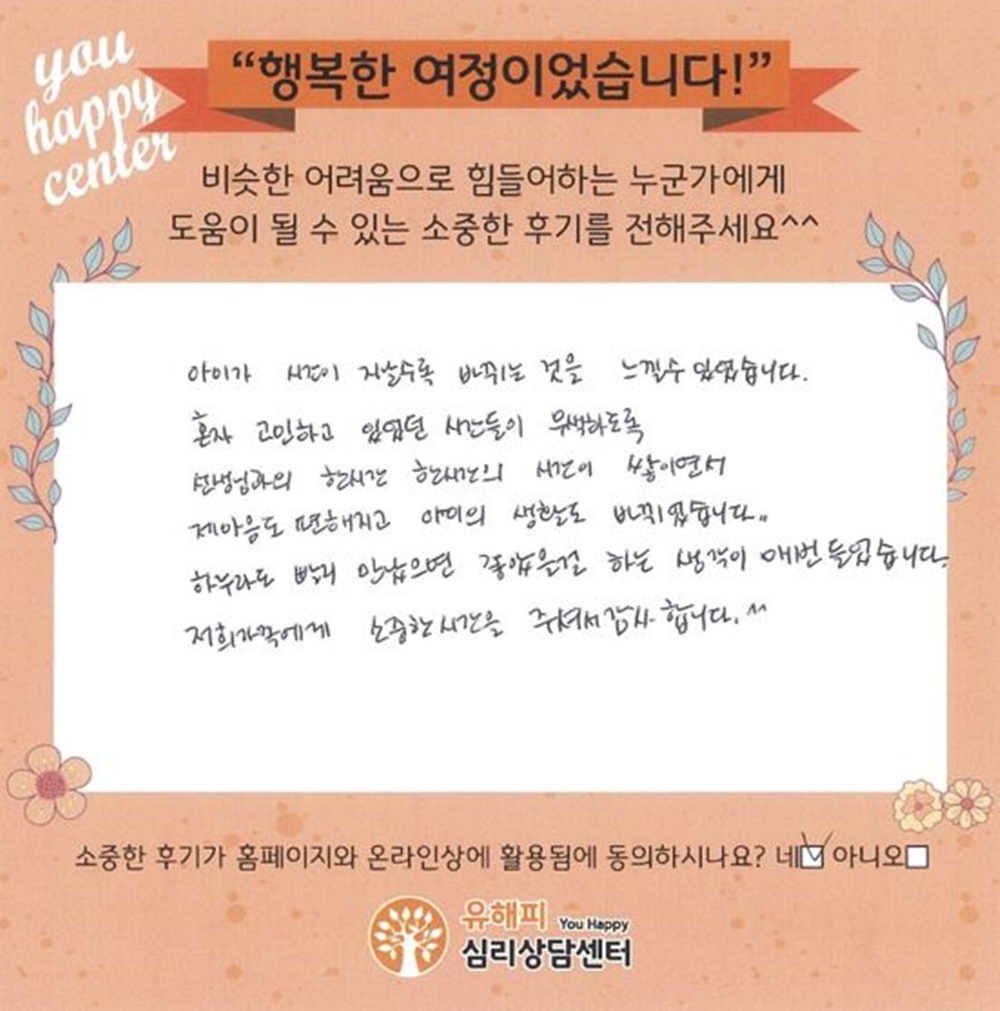 you
happy
center
“행복한 여정이었습니다!”
비슷한 어려움으로 힘들어하는 누군가에게
도움이 될 수 있는 소중한 후기를 전해주세요^^
아이가 시간이 지날수록 바뀌는 것을 느낄수 있었습니다.
혼자 고민하고 있었던 시간들이 무색하도록
선생님과의 한시간 한시간의 시간이 쌓이면서
제마음도 편해지고 아이의 생활도 바뀌었습니다..
하루라도 빨리 만났으면 좋았을걸 하는 생각이 매번 들었습니다.
저희가족에게 소중한시간을 주셔서감사합니다.^^
소중한 후기가 홈페이지와 온라인상에 활용됨에 동의하시나요? 네☑ 아니오□
유해피 You Happy
심리상담센터